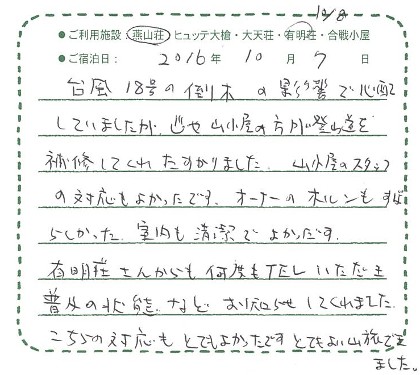 10/8
●ご利用施設 燕山荘・ヒュッテ大槍・大天荘・有明荘・合戦小屋
●ご宿泊日： 2016年 10月 7日
台風18号の倒木の影響で心配
していましたが、山小屋の方が登山道を
補修してくれ たすかりました。山小屋のスタッフ
の対応もよかったです。オーナーのホルンもすば
らしかった。室内も清潔でよかたです。
有明荘さんからも何度もTELいただき
の状態など お知らせしてくれました。
こちらの対応もとてもよかったです とてもよい山旅でき
ました。